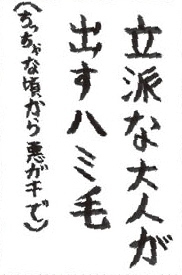 立派な大人が
出すハミ毛
(ちっちゃな頃から悪ガキで)